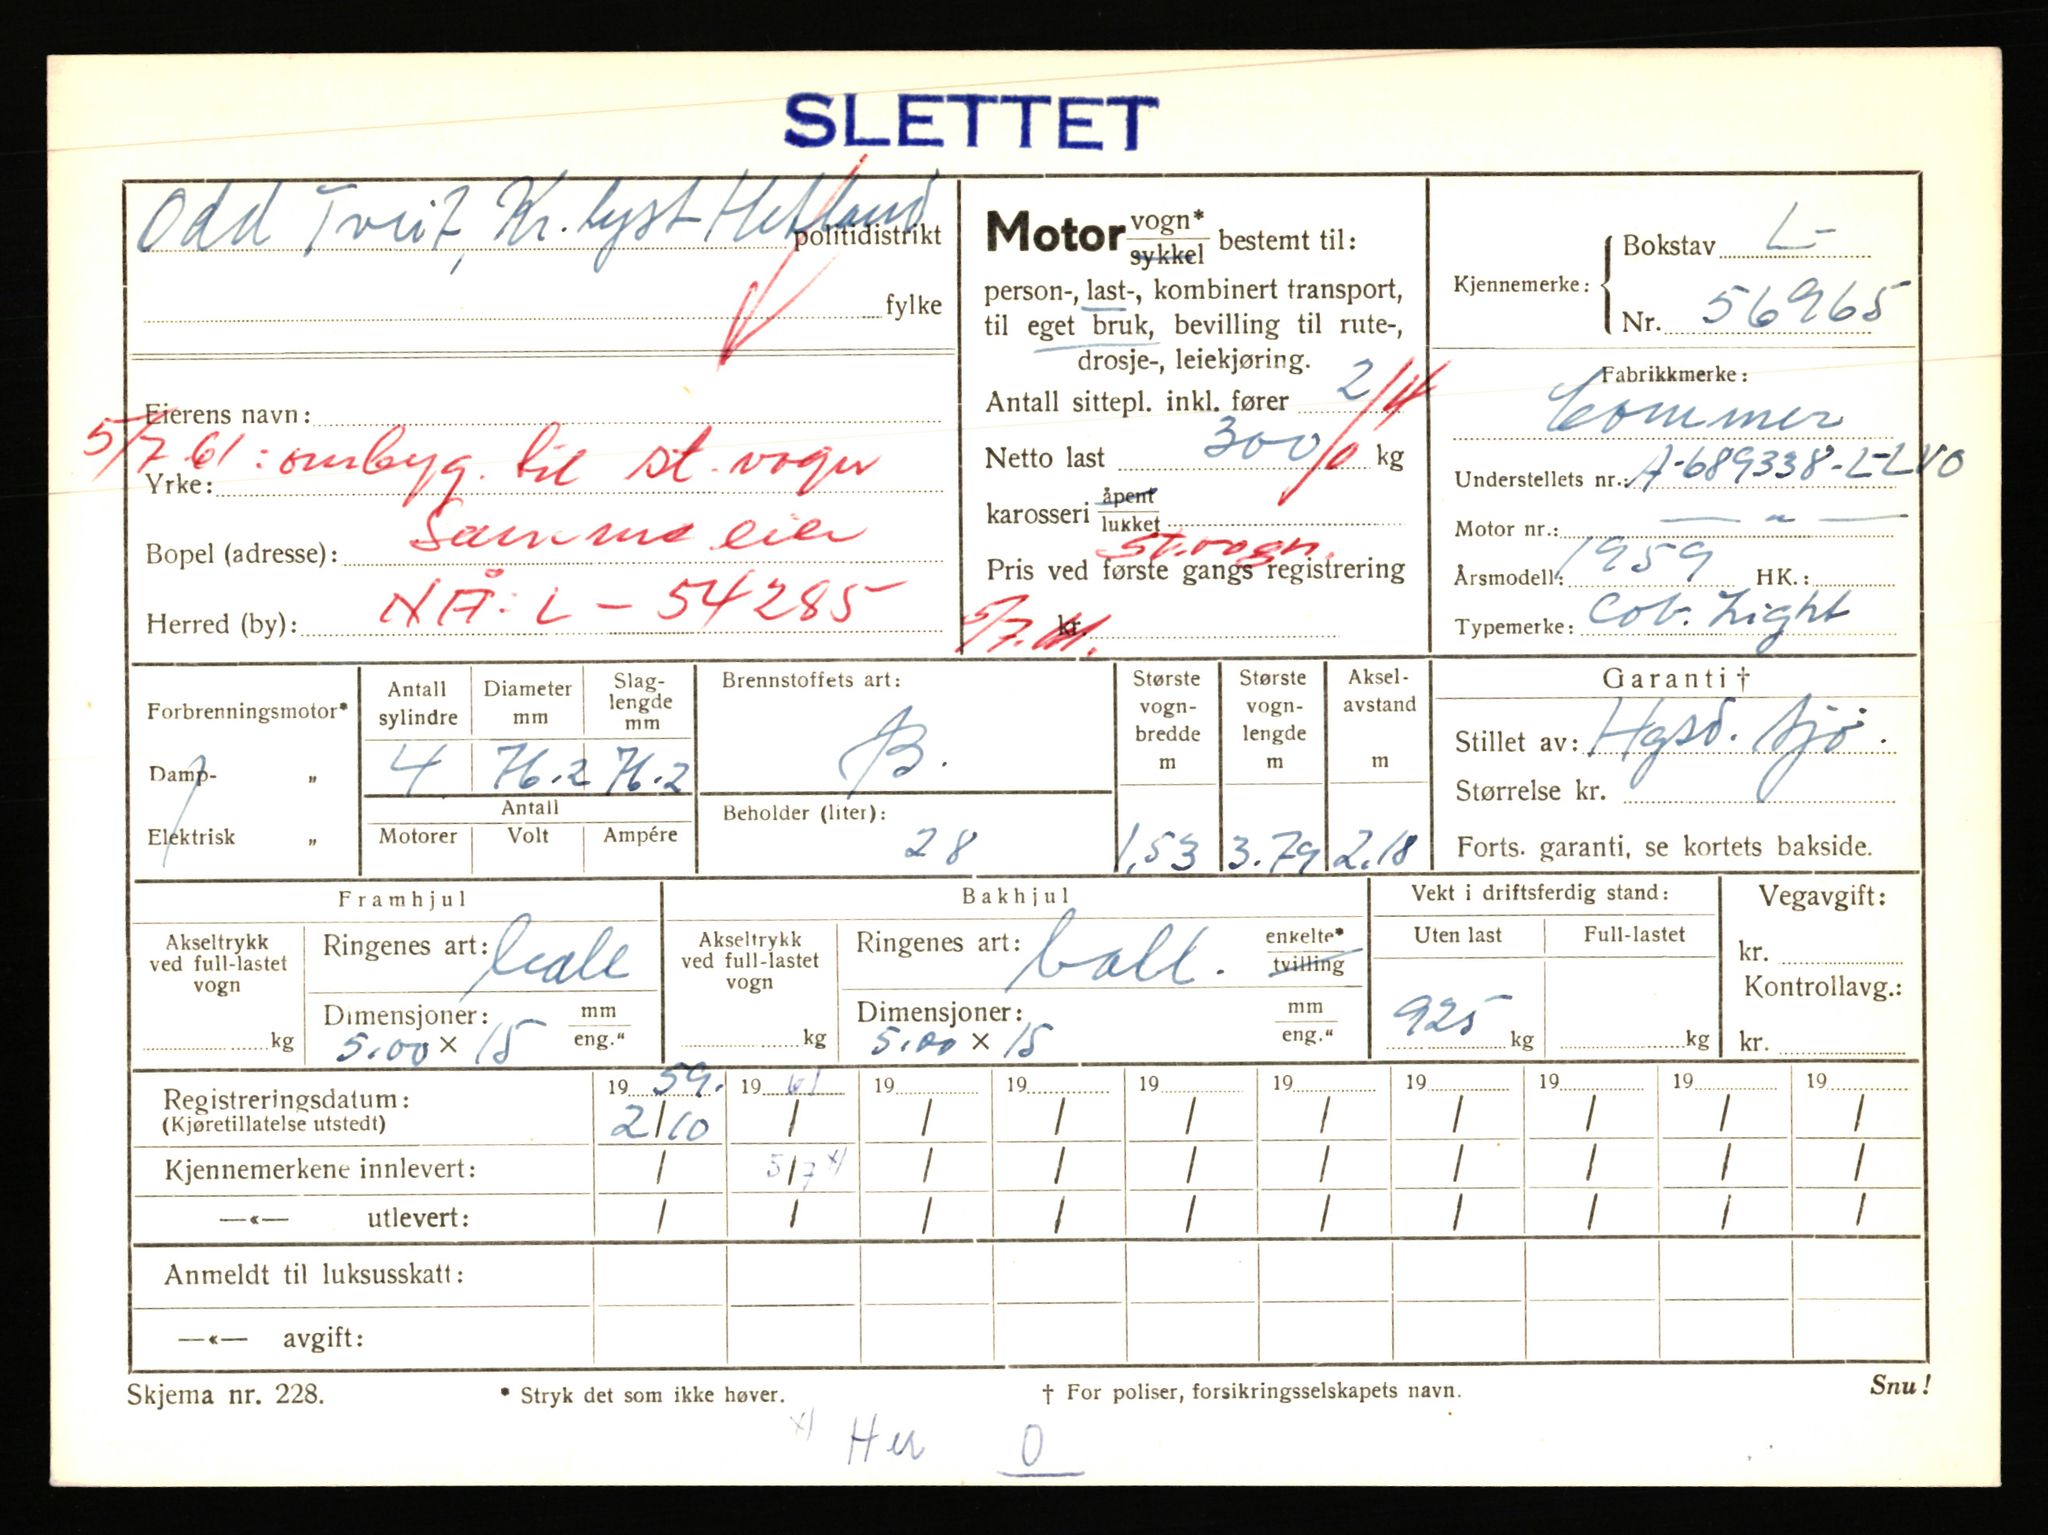 SLETTET
Odd Tveit, Kr.lyst Hetland
politidistrikt
fylke
Eierens navn:
5/7 61: ombyg. til st. vogn
Yrke:
Samme eier
Bopel (adresse):
NÅ: L - 54285
Herred (by):
Motor vogn* / sykkel bestemt til:
person-, last-, kombinert transport,
til eget bruk, bevilling til rute-,
drosje-, leiekjøring.
Antall sittepl. inkl. fører 2/4
Netto last 300/0 kg
karosseri åpent / lukket
St.vogn.
Pris ved første gangs registrering
5/7.61. kr.
Kjennemerke: Bokstav L-
Nr. 56965
Fabrikkmerke:
Commer
Understellets nr.: A-689338-L-LVO
Motor nr.: — " —
Årsmodell: 1959 HK.:
Typemerke: Cob. Light
Forbrenningsmotor*
Damp- „
Elektrisk „
Antall sylindre
4
Diameter mm
76.2
Slaglengde mm
76.2
Antall
Motorer Volt Ampére
Brennstoffets art:
B.
Beholder (liter):
28
Største vognbredde m
1,53
Største vognlengde m
3.79
Akselavstand m
2.18
Garanti †
Stillet av: Hgsd. Sjø.
Størrelse kr.
Forts. garanti, se kortets bakside.
Framhjul
Akseltrykk ved full-lastet vogn
kg
Ringenes art:
Dimensjoner: mm / eng.“
5.00 x 15
Bakhjul
Akseltrykk ved full-lastet vogn
kg
Ringenes art: Ball. enkelte* / tvilling
Dimensjoner: mm / eng.“
5.00 x 15
Vekt i driftsferdig stand:
Uten last Full-lastet
925 kg kg
Vegavgift:
kr.
Kontrollavg.:
kr.
Registreringsdatum: 19 59. 19 61 19 19 19 19 19 19 19 19
(Kjøretillatelse utstedt) 2/10 / / / / / / / / /
Kjennemerkene innlevert: / 5/7 x) / / / / / / / /
—«— utlevert: / / / / / / / / / /
Anmeldt til luksusskatt:
—«— avgift:
Skjema nr. 228. * Stryk det som ikke høver. † For poliser, forsikringsselskapets navn. Snu!
x) Her 0